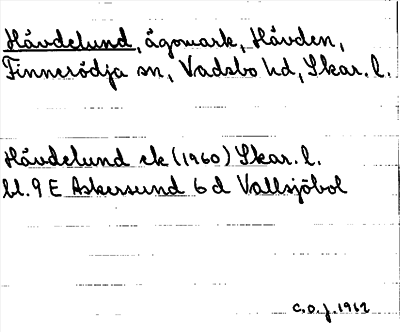 Håvdelund, ägomark, Håvden,
Finnerödja sn, Vadsbo hd, Skar. l.
Håvdelund ek (1960) Skar. l.
bl. 9 E Askersund 6 d Vallsjöbol
C.O.J. 1962